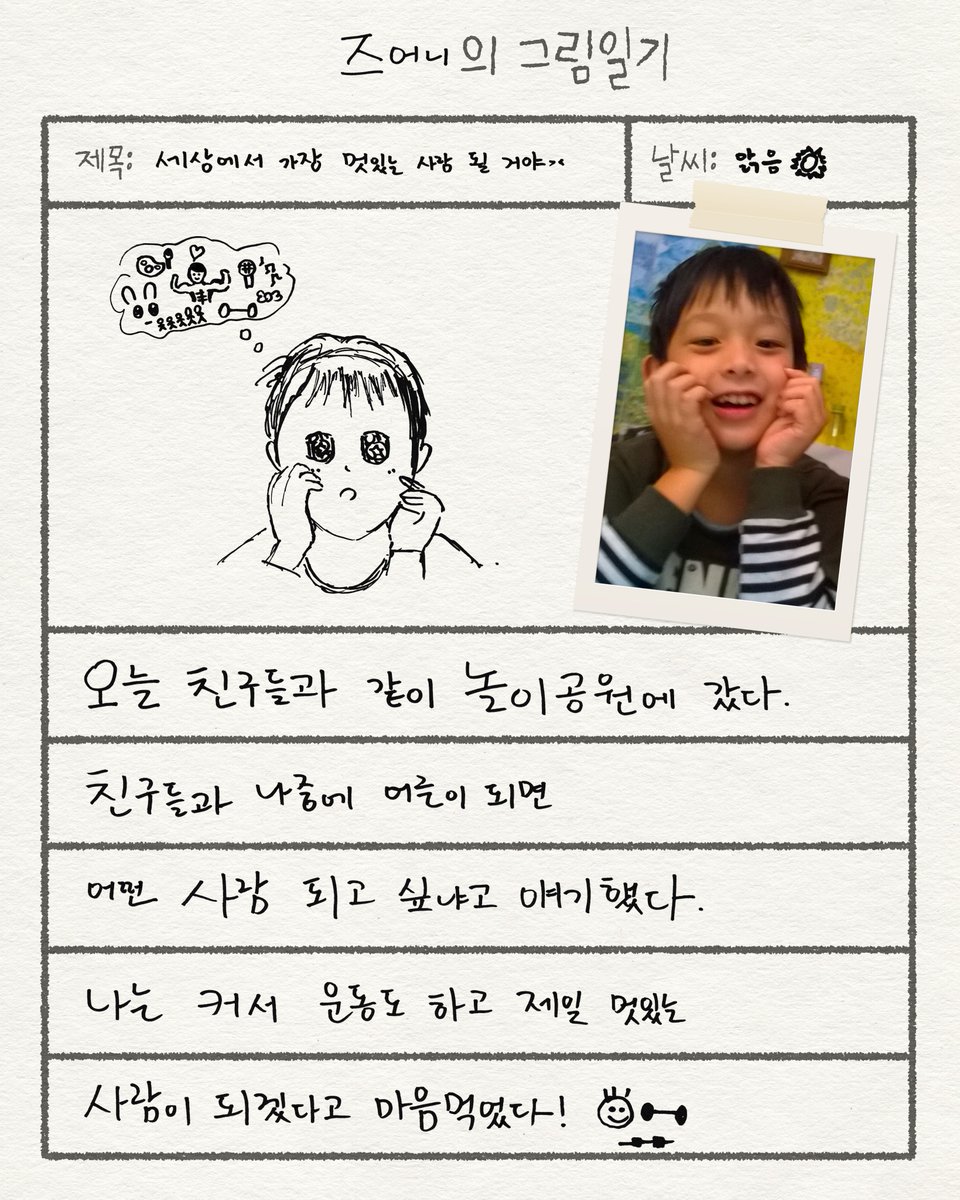 즈어니의 그림일기
제목: 세상에서 가장 멋있는 사람 될 거야~
날씨: 맑음
803
오늘 친구들과 같이 놀이공원에 갔다.
친구들과 나중에 어른이 되면
어떤 사람 되고 싶냐고 얘기했다.
나는 커서 운동도 하고 제일 멋있는
사람이 되겠다고 마음먹었다!